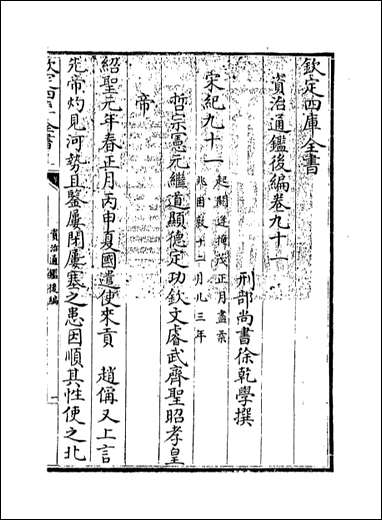 欽定四庫全書
資治通鑑後編卷九十一
刑部尚書徐乾學撰
宋紀九十一
起閼逢掩茂正月盡柔
兆困敦十二月凡三年
哲宗憲元繼道顯德定功欽文睿武齊聖昭孝皇
帝
紹聖元年春正月丙申夏國遣使來貢 趙偁又上言
先帝灼見河勢且鑒屢閉屢塞之患因順其性使之北
欽定四庫全書
資治通鑑後編
一